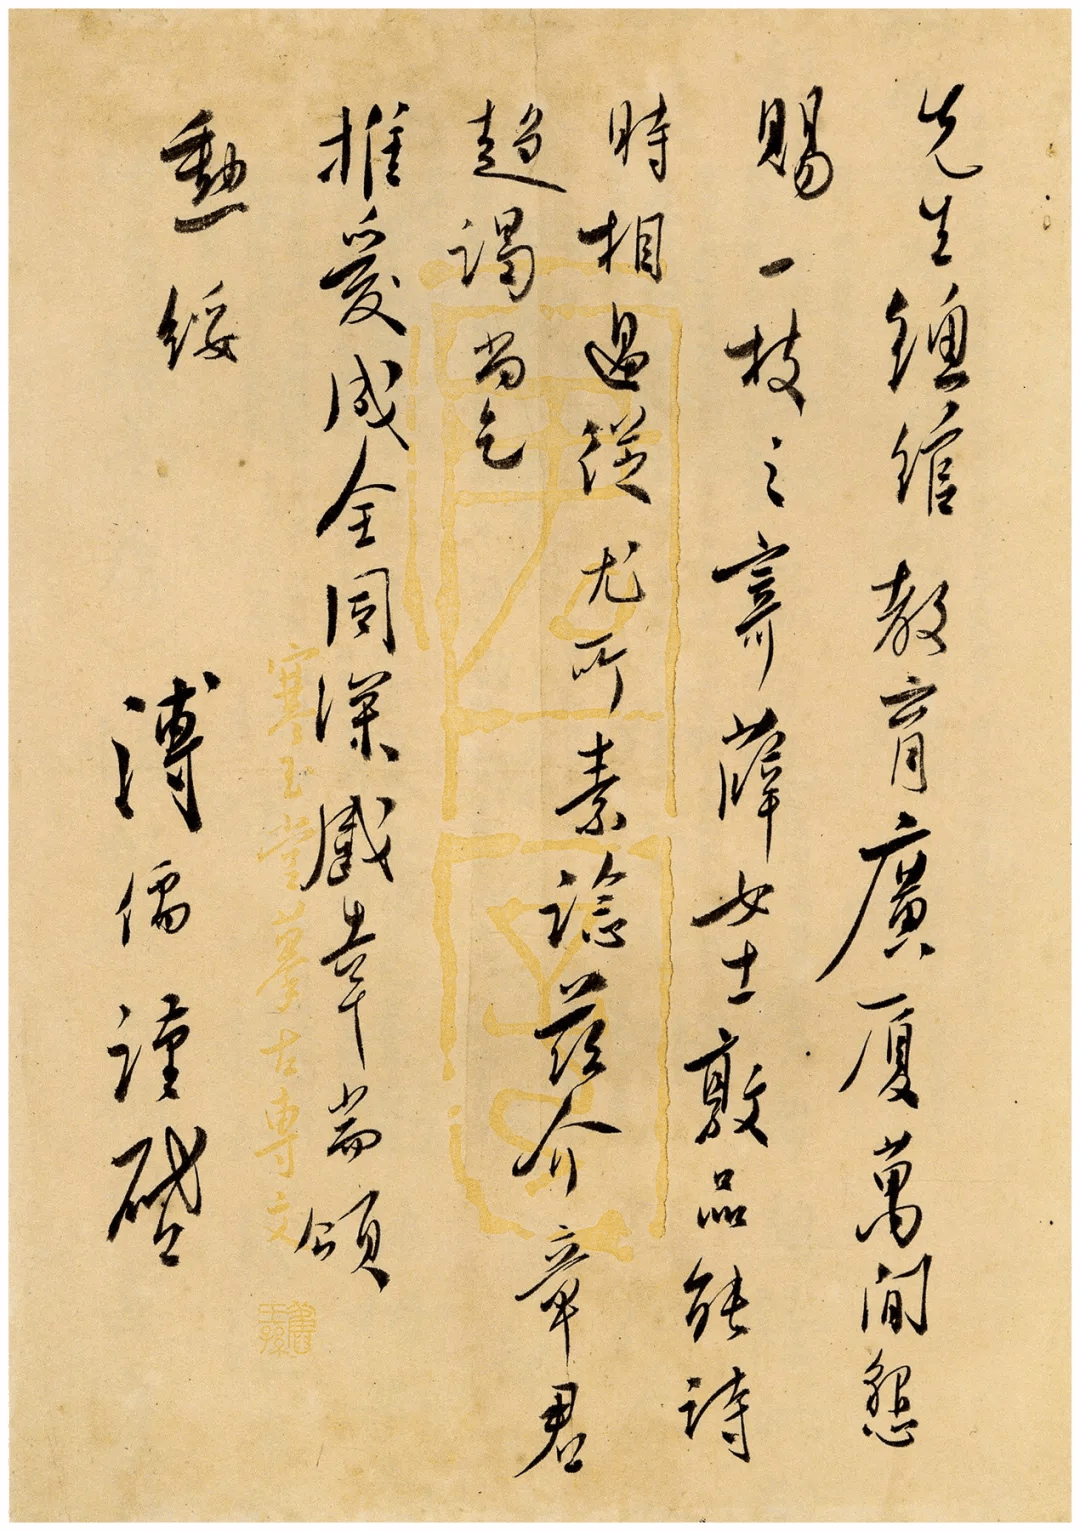 先生總綰教育廣厦萬間懇
賜一枝之寄薛女士敦品能詩
時相過從尤所素諗茲介章君
趨謁尚乞
推愛成全同深感幸耑頌
勳綏
溥儒謹啓
寒玉堂摹古専文